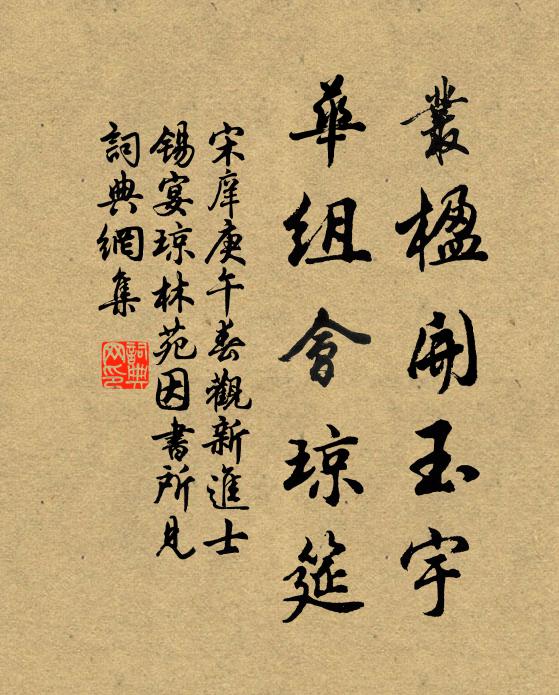 叢楹開玉宇
華組會琼筵
宋庠庚午春觀新進士
锡宴琼林苑因書所見
詞典網集
詞典网印